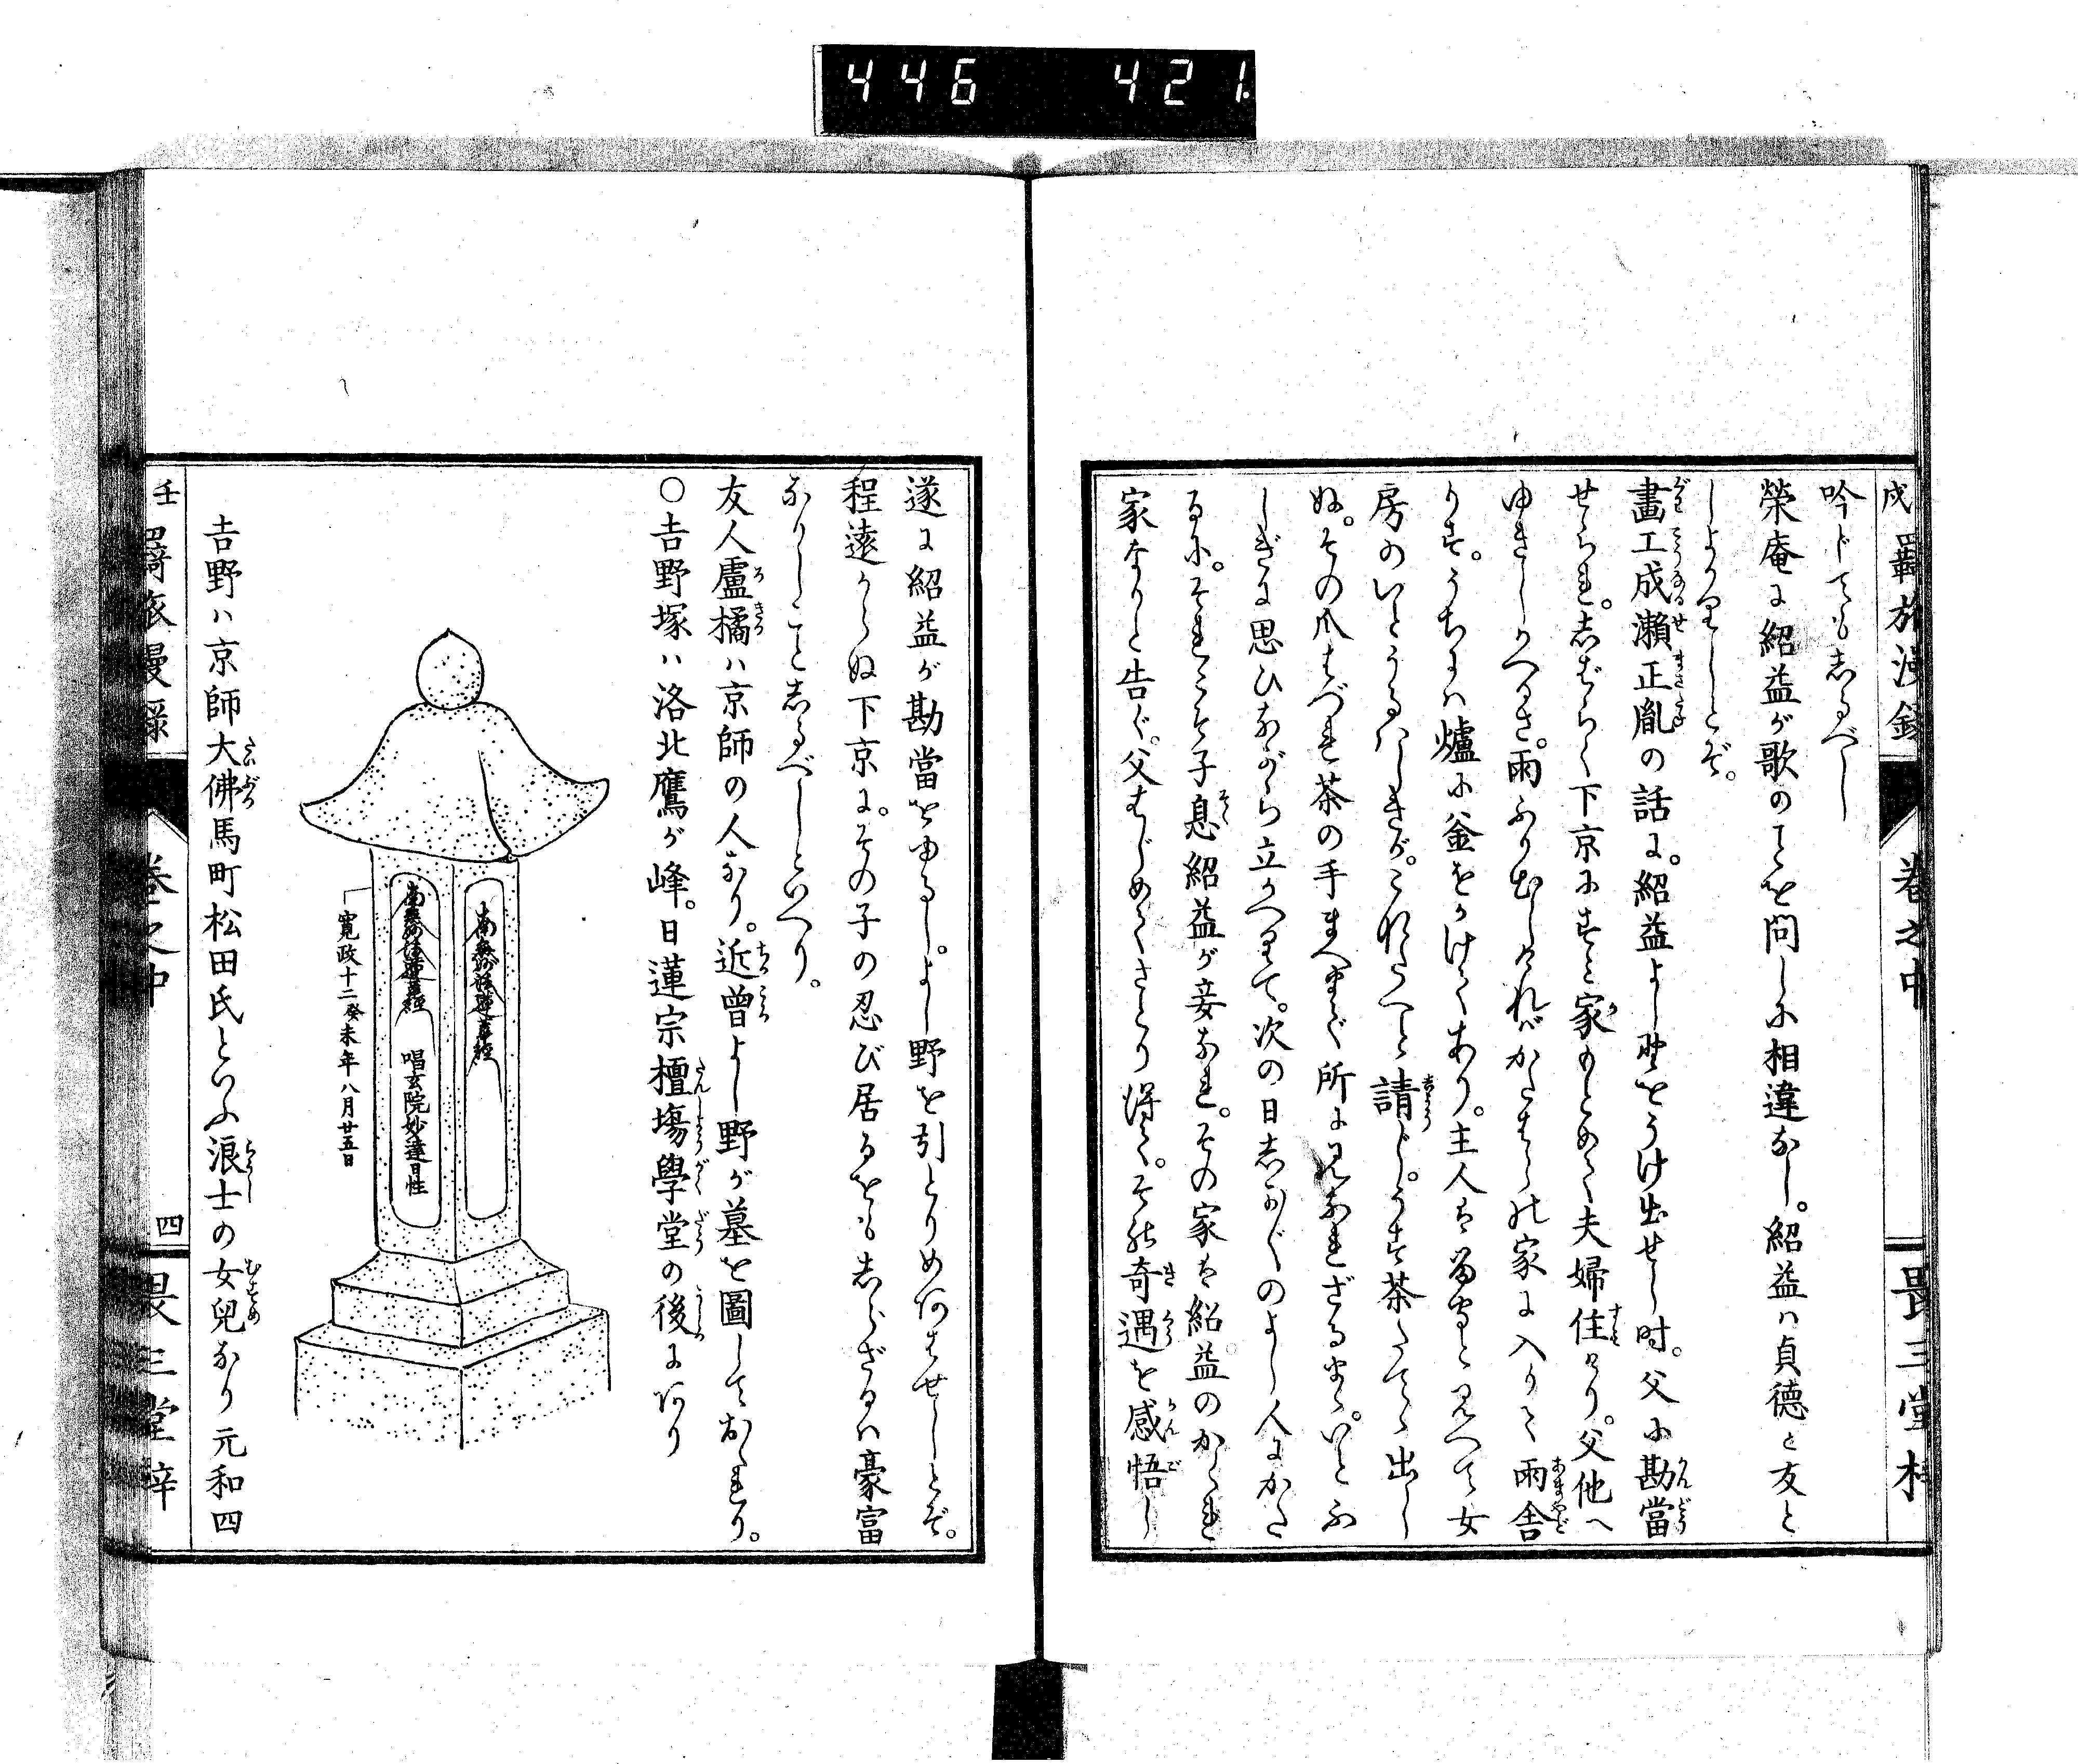 446 421.
吟じてもしるべし
榮庵に紹益が歌のことを問しに相違なし。紹益ハ貞徳と友と
しよかりしとぞ。
畫工成瀬正胤の話に。紹益よし野をうけ出せし時。父に勘當
せられ。しばらく下京にすこし家もとめて夫婦住けり。父他へ
ゆきしかへるさ。雨ふりむしければかたはらの家に入りて雨舎
りす。うちにハ爐に釜をかけてあり。主人は留守と見へて女
房のいとうるはしきが。これへと請じ。うす茶たてゝ出し
ぬ。その爪はづれ茶の手まへまで所に見なれざるまゝ。いとふ
しぎに思ひながら立かへりて。次の日しか〴〵のよし人にかた
るに。それこそ子息紹益が妾なれ。その家は紹益のかくれ
家なりと告ぐ。父はじめてさとり得て。その奇遇を感悟し
遂に紹益が勘當をゆるし。よし野を引とりめあはせしとぞ。
程遠からぬ下京に。その子の忍び居るをもしらざるハ豪富
なりしことしるべしといへり。
友人盧橘ハ京師の人なり。近曾よし野が墓を圖しておくれり。
○吉野塚ハ洛北鷹が峰。日蓮宗檀場學堂の後にあり
南無妙法蓮華經
南無妙法蓮華經 唱玄院妙達日性
寛政十二癸未年八月廿五日
吉野ハ京師大佛馬町松田氏といふ浪士の女兒なり元和四
壬 羇旅漫録 巻之中 四 畏三堂梓